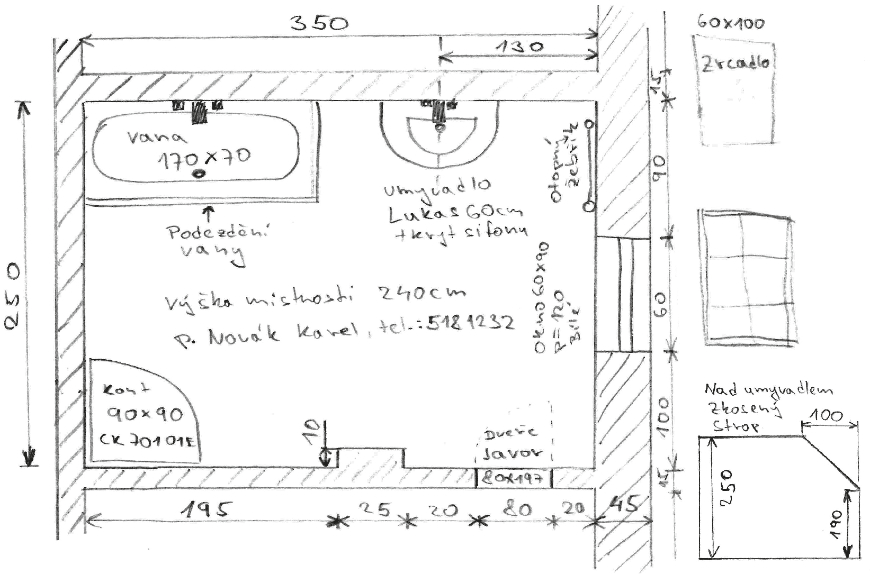 350
130
60x100
Zrcadlo
15
vana
170x70
umyvadlo
Lukas 60cm
+kryt sifonu
Otopný
žebřík
90
Podezdění
vany
250
výška místnosti 240cm
p. Novák Karel, tel.: 5181232
Okno 60x90
P=120
Bílé
60
kout
90x90
CK 70101E
10
Dveře
Javor
80x197
100
15
195
25
20
80
20
45
Nad umyvadlem
zkosený
strop
100
250
190